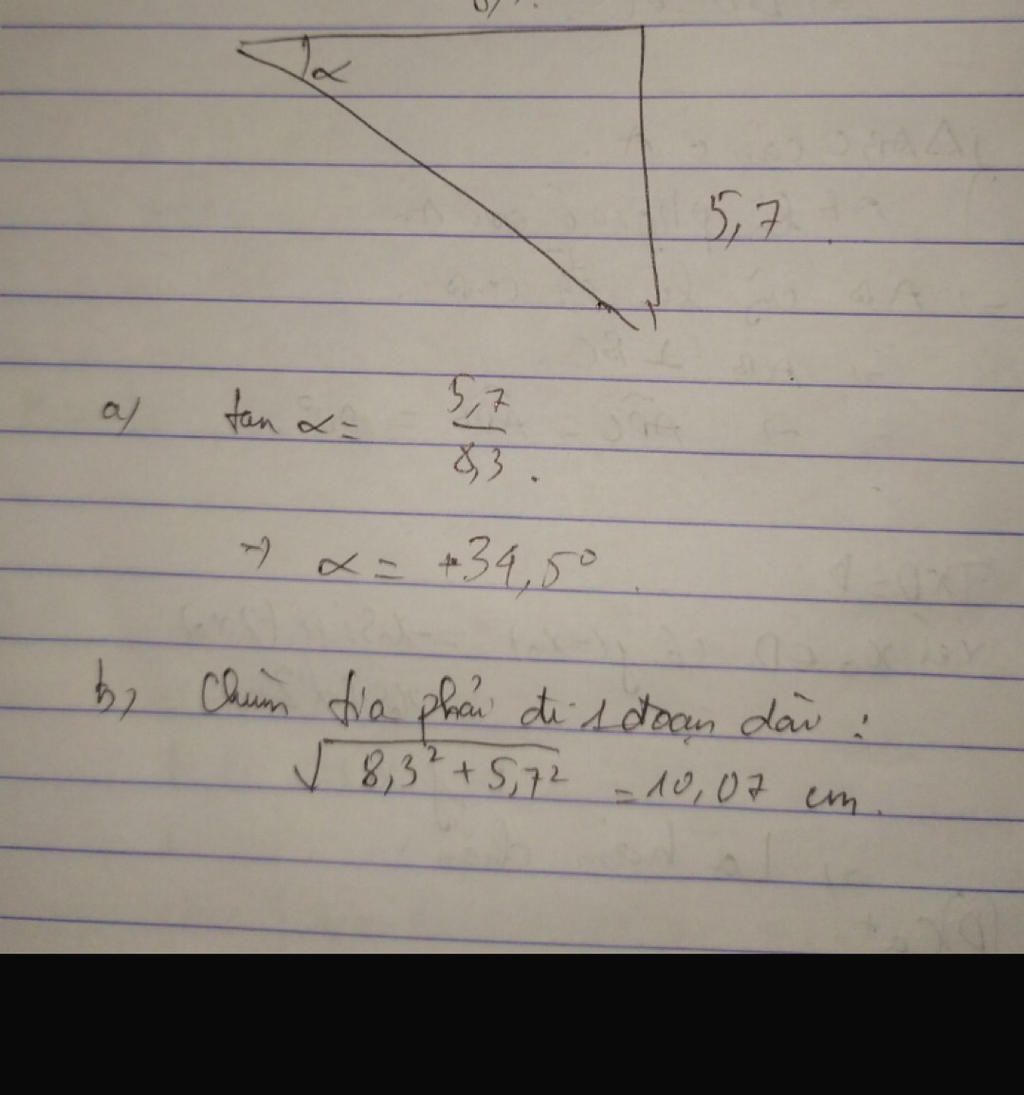 α
5,7
a) tan α = 5,7 / 8,3 .
→ α = 34,5°
b, Chùm tia phải đi 1 đoạn dài :
√8,3² + 5,7² = 10,07 cm.